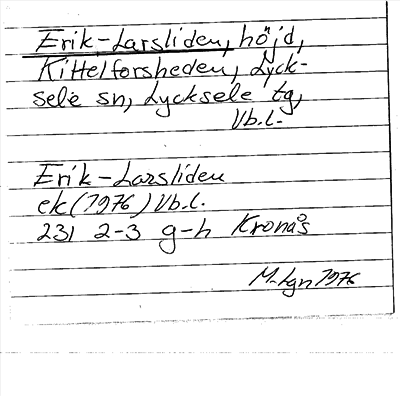 Erik-Larsliden, höjd,
Kittelforsheden, Lyck-
sele sn, Lycksele tg,
Vb.l.
Erik-Larsliden
ek (1976) Vb.l.
231 2-3 g-h Kronås
M-Lgn 1976